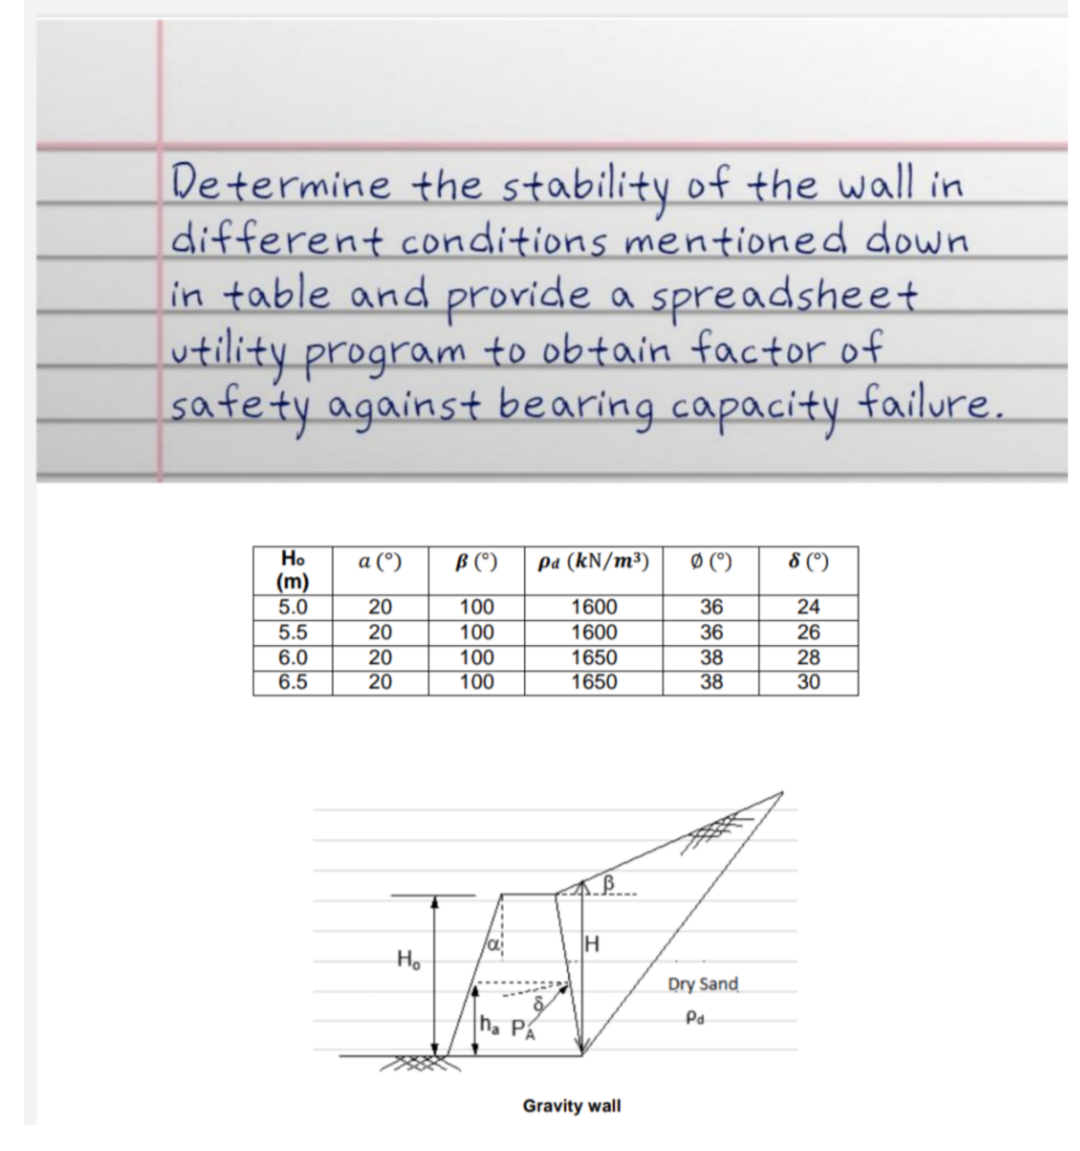 Determine the stability of the wall in
different conditions mentioned down
in table and provide a spreadsheet
utility program to obtain factor of
safety against bearing capacity failure.
H₀ (m) α (°) β (°) ρd (kN/m³) Ø (°) δ (°)
5.0 20 100 1600 36 24
5.5 20 100 1600 36 26
6.0 20 100 1650 38 28
6.5 20 100 1650 38 30
β
α
H
H₀
Dry Sand
δ
hₐ P_A
ρd
Gravity wall